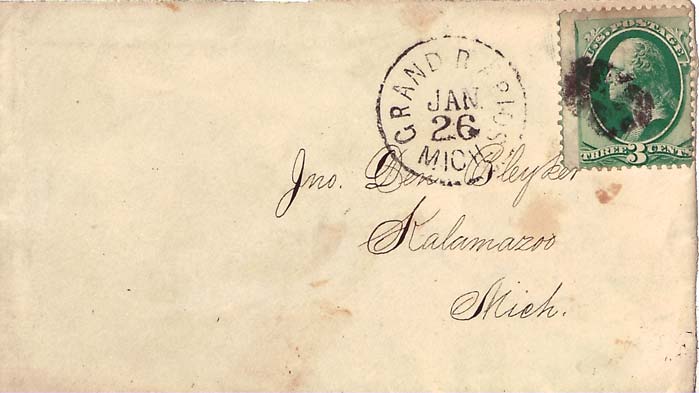 U.S. POSTAGE
THREE 3 CENTS
GRAND RAPIDS
JAN.
26
MICH.
Jno. Den Bleyker
Kalamazoo
Mich.